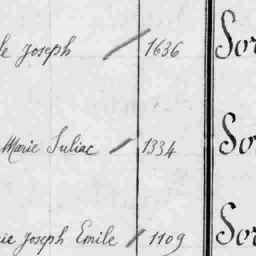 Joseph 1636 Sor
Marie Suliac 1334 So
Joseph Emile 1109 Sor